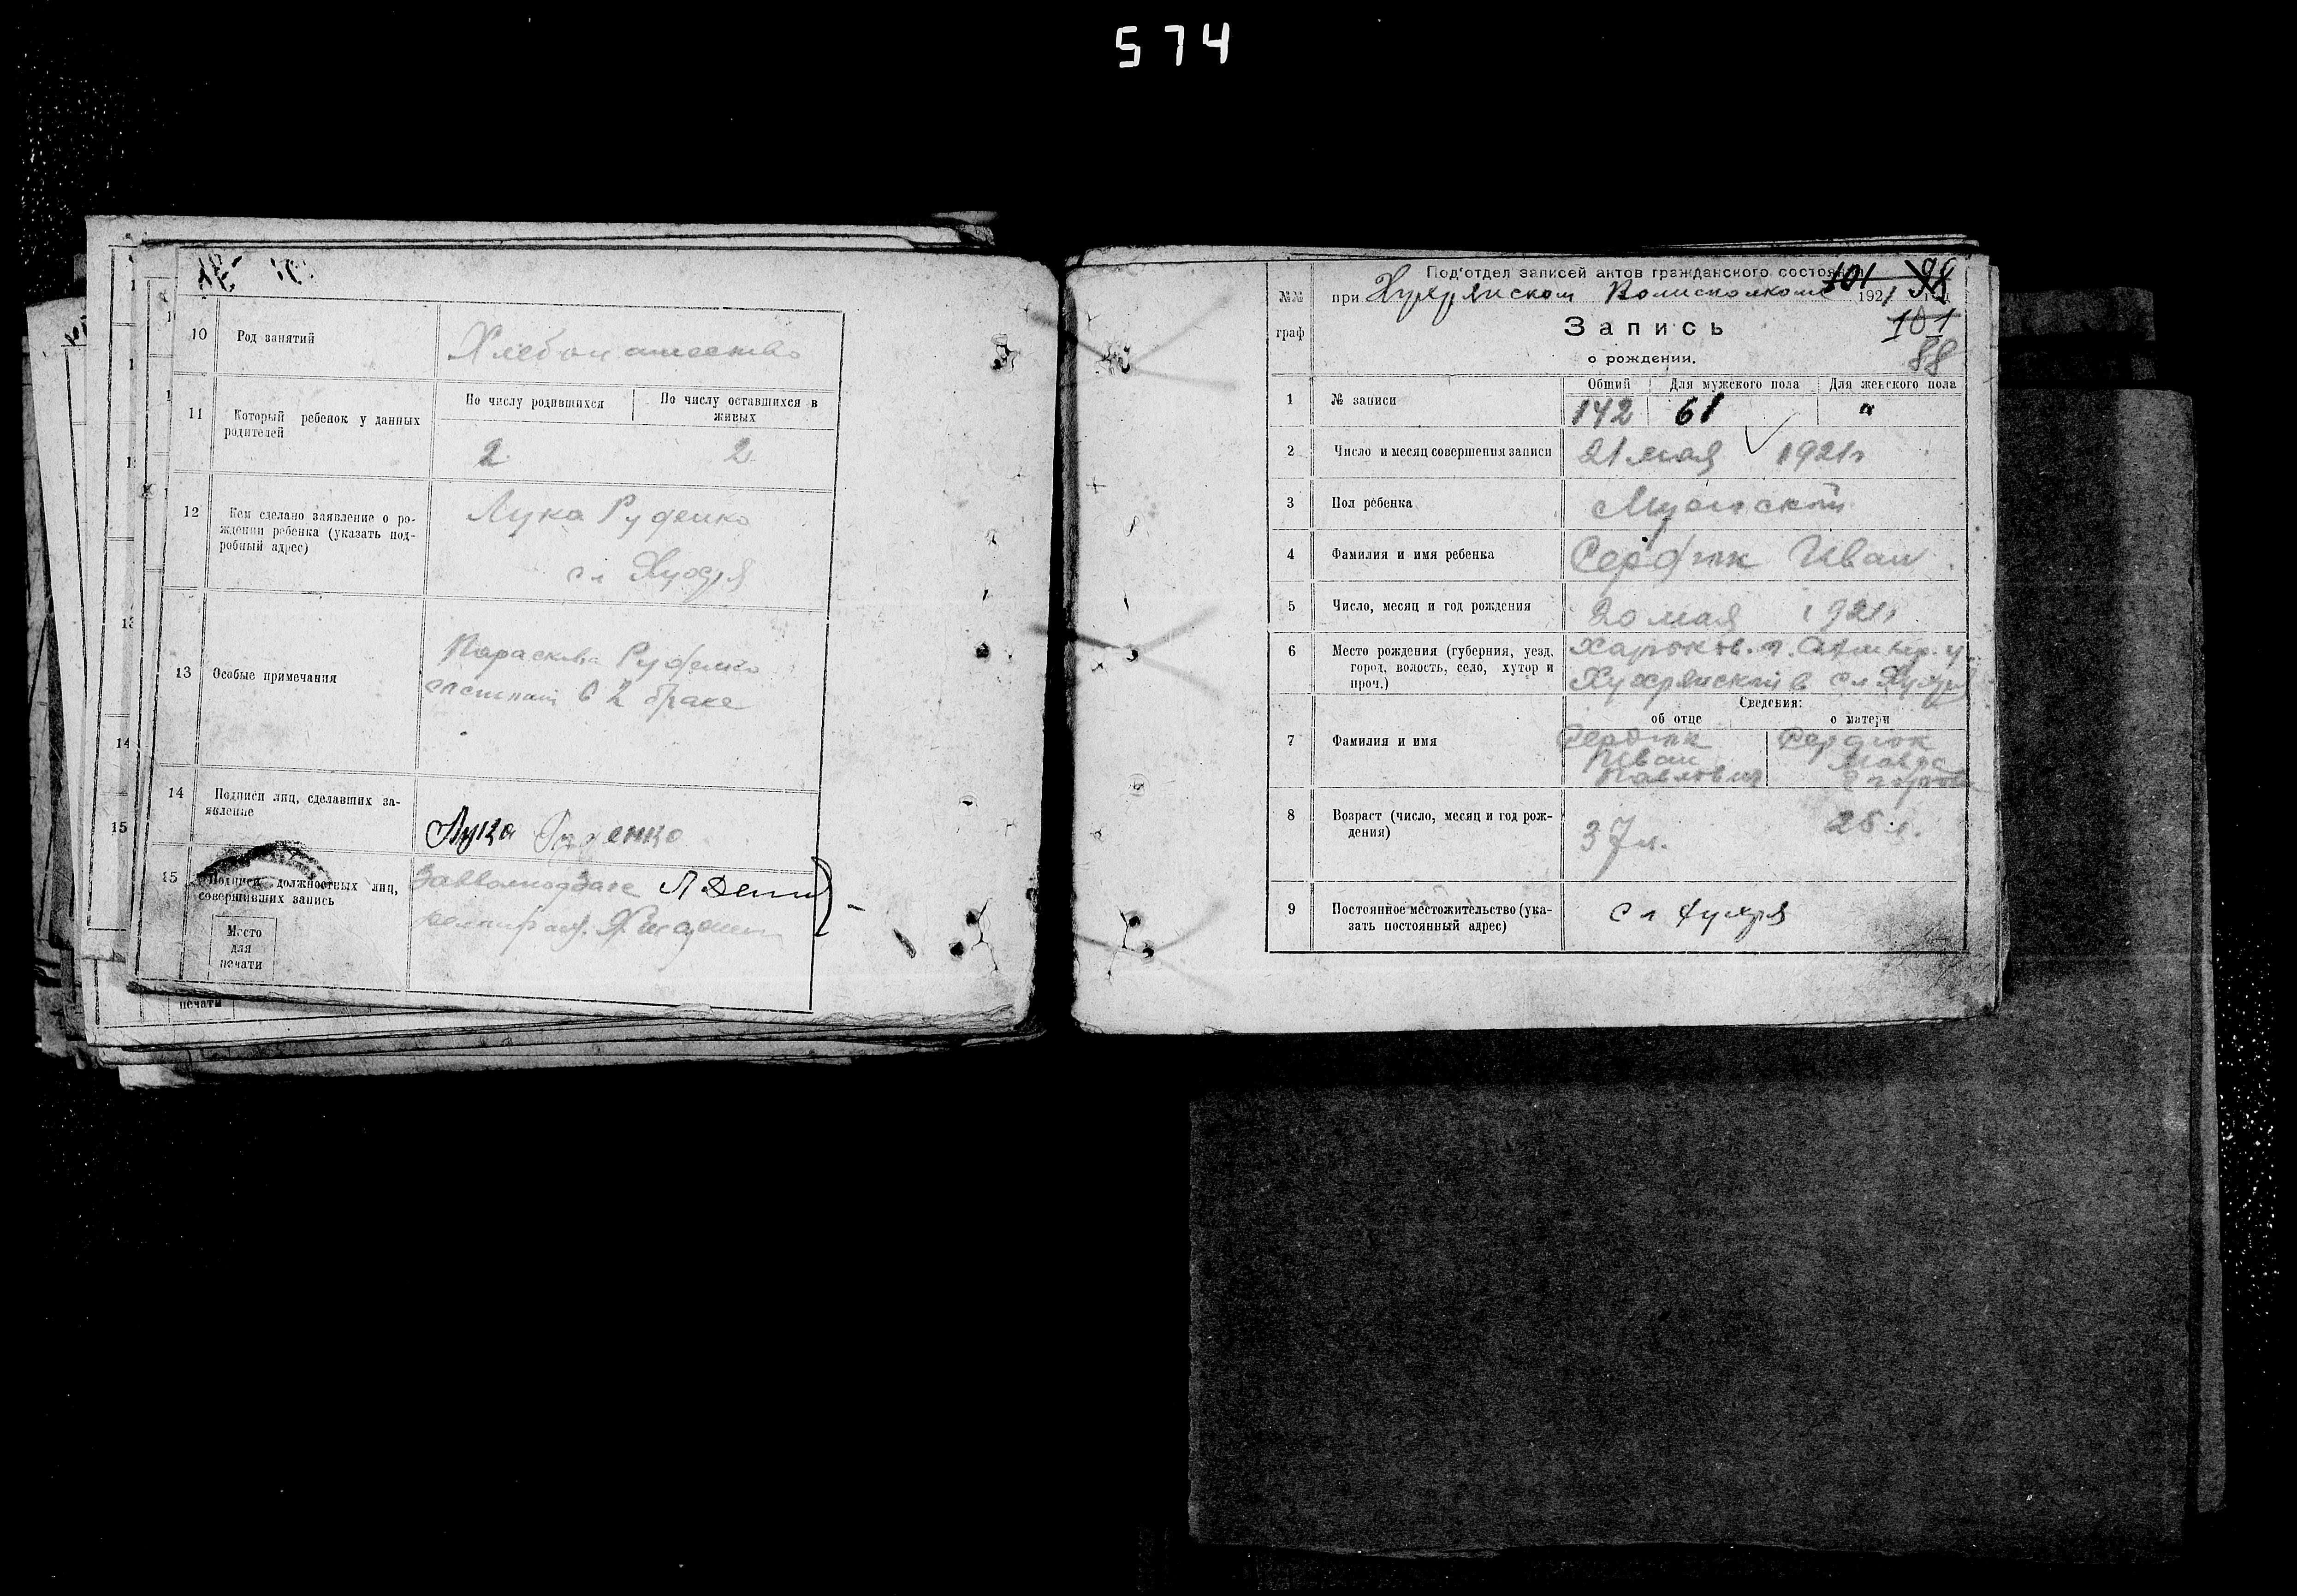 574
10 Род занятий Хлебопашество
11 Который ребенок у данных
родителей
По числу родившихся По числу оставшихся в
живых
2 2
12 Кем сделано заявление о ро-
ждении ребенка (указать под-
робный адрес)
Лука Руденко
сл Хухря
13 Особые примечания
Параскева Руденко
состоит в 2 браке
14 Подписи лиц, сделавших за-
явление
Лука Руденко
15 Подписи должностных лиц,
совершивших запись
Место
для
печати
печати
14
15
Под'отдел записей актов гражданского состояния
№№
граф
при Хухрянском Волисполкоме 1921 год.
101
98
Запись
101
о рождении.
88
Общий Для мужского пола Для женского пола
1 № записи 142 61 "
2 Число и месяц совершения записи 21 мая 1921г
3 Пол ребенка Мужской
4 Фамилия и имя ребенка Сердюк Иван
5 Число, месяц и год рождения 20 мая 1921г
6 Место рождения (губерния, уезд,
город, волость, село, хутор и
проч.)
Харьков. г. Ахтыр. у.
Хухрянской в сл Хухря
Сведения:
об отце о матери
7 Фамилия и имя
Сердюк
Иван
Павлович
Сердюк
Мавра
8 Возраст (число, месяц и год рож-
дения)
37 л. 25 л.
9 Постоянное местожительство (ука-
зать постоянный адрес)
сл Хухря